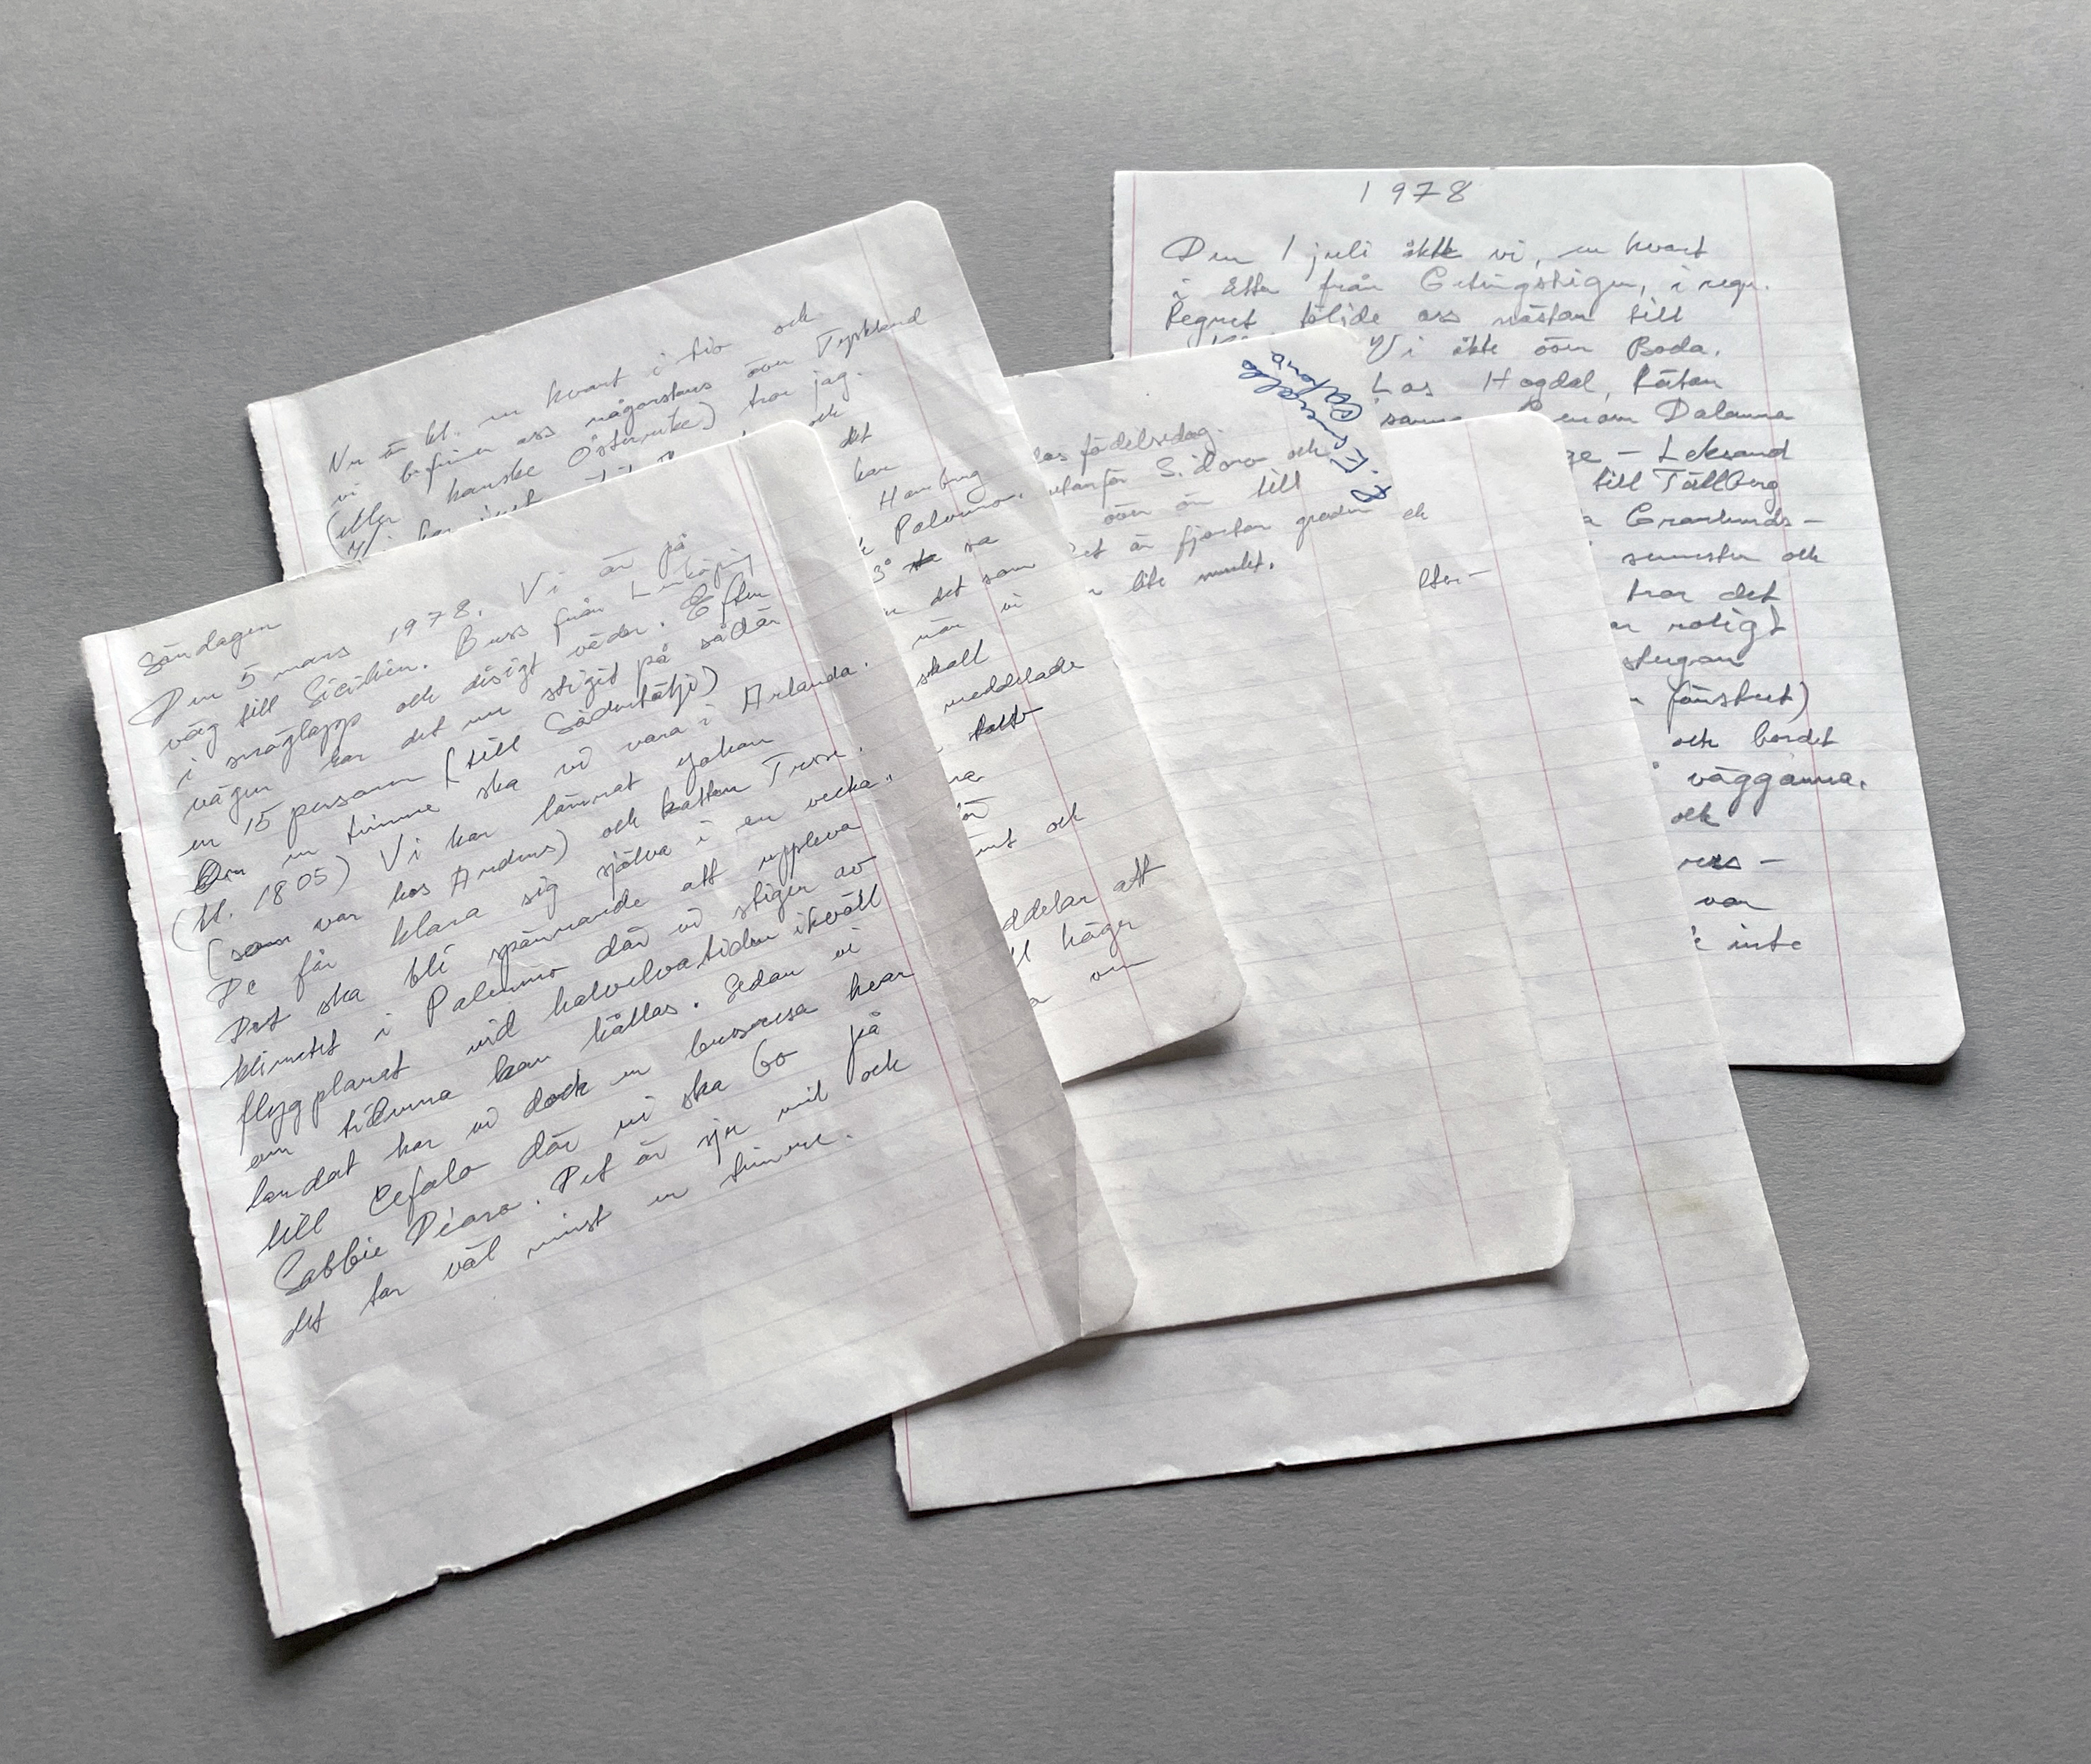 Söndagen
Den 5 mars 1978. Vi är på
väg till Sicilien. Buss från Linköping
i snöglopp och disigt väder. Efter
vägen har det nu stigit på sådär
en 15 personer (till Södertälje)
Om en timme ska vi vara i Arlanda.
(kl. 1805) Vi har lämnat Johan
(som var hos Anders) och katten Trisse.
De får klara sig själva i en vecka.
Det ska bli spännande att uppleva
klimatet i Palermo där vi stiger av
flygplanet vid halvelvatiden ikväll
om tiderna kan hållas. Sedan vi
landat har vi dock en bussresa kvar
till Cefalo där vi ska bo på
Sabbie Díoro. Det är sju mil och
det tar väl minst en timme.
Nu är kl. en kvart i tio och
vi befinner oss någonstans över Tyskland
(eller kanske Österrike) tror jag.
och
det
har
Hamburg
Palermo.
3° sa
det som
när vi
skall
meddelade
och
ddelar att
ll höger
om
as födelsedag.
utanför S. Doro och
över ön till
et är fjorton grader
lite mulet.
Cefalo
och
lter-
1978
Den 1 juli åkte vi, en kvart
i Etta från Getingstigen, i regn.
Regnet följde oss nästan till
Vi åkte över Boda.
Los Hogdal, Rätan
Genom Dalarna
ge - Leksand
till Tällberg
a Granlunds-
semester och
tror det
roligt
stugan
fönstret)
och bordet
väggarna.
och
ress-
var
inte